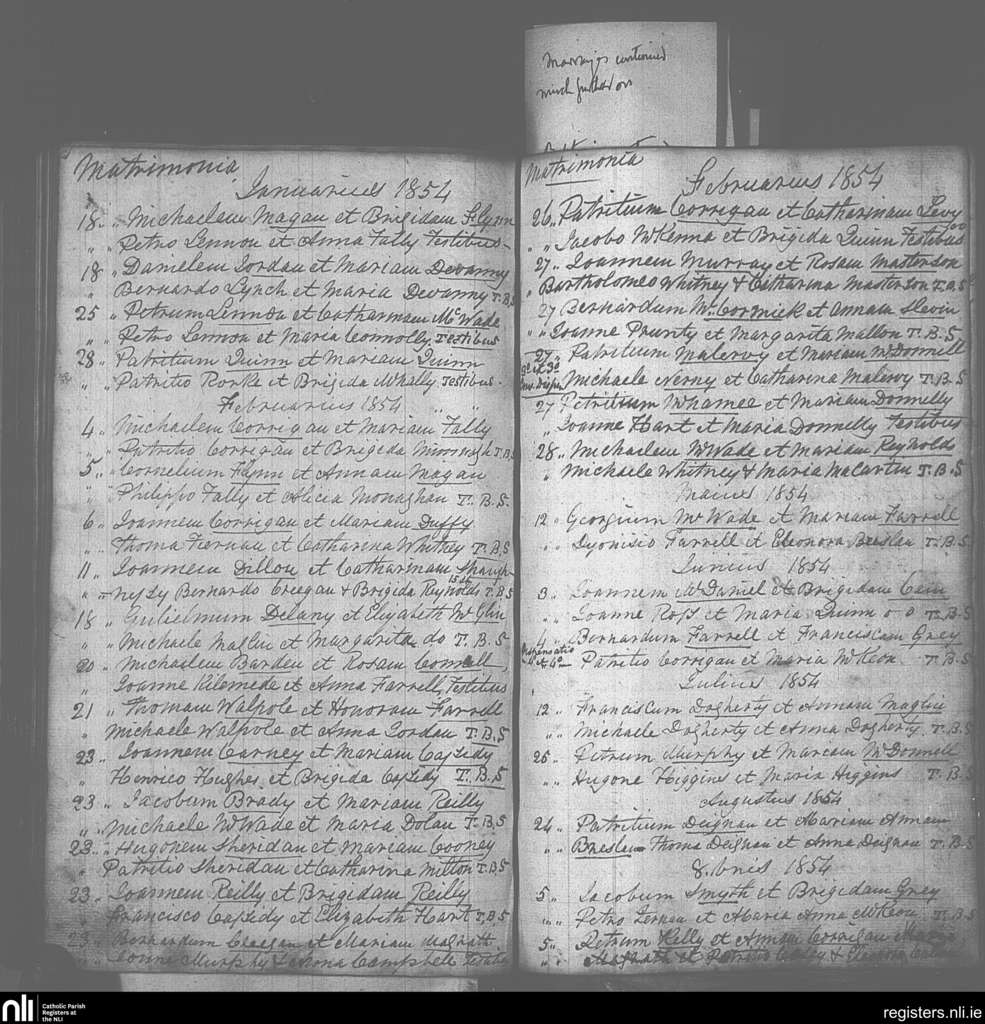 Marriages continued
much further on
Matrimonia
Januarius 1854
18 „ Michaelem Magan et Brigidam Flynn
„ „ Petro Lennon et Anna Fally Testibus
18 „ Danielem Jordan et Mariam Devanny
„ Bernardo Lynch et Maria Devanny T.B.S
25 „ Petrum Lennon et Catharinam McWade
„ Petro Lennon et Maria Connolly, Testibus
28 „ Patritium Quinn et Mariam Quinn
„ Patritio Rorke et Brigida McNally Testibus
Februarius 1854
4 „ Michaelem Corrigan et Mariam Fally
„ Patritio Corrigan et Brigida T.B.S
5 „ Cornelium Flynn et Annam Magan
„ Philippo Fally et Alicia Monaghan T.B.S.
6 „ Joannem Corrigan et Mariam Duffy
„ Thoma Fiernan et Catharina Whitney T.B.S
11 „ Joannem Dillon et Catharinam Shaugh-
„ = nessy Bernardo Creegan & Brigida Reynolds T.B.S
18 „ Gulielmum Delany et Elizabeth
„ Michaele et Margarita do T.B.S
20 „ Michaelem Barden et Rosam Connell
„ Joanne Kilemede et Anna Farrell, Testibus
21 „ Thomam Walpole et Honoram Farrell
„ Michaele Walpole et Anna Jordan T.B.S
23 „ Joannem Carney et Mariam Cassedy
„ Henrico Hughes et Brigida Cassedy T.B.S
23 „ Jacobum Brady et Mariam Reilly
„ Michaele McWade et Maria Dolan T.B.S
23 „ Hugonem Sheridan et Mariam Cooney
Patritio Sheridan et Catharina Milton T.B.S
23 „ Joannem Reilly et Brigidam Reilly
Francisco Cassedy et Elizabeth Hart T.B.S
23 „ Bernardum Creegan et Mariam Magrath
Murphy & Anna Campbell Testibus
Matrimonia
Februarius 1854
26 „ Patritium Corrigan et Catharinam Levy
„ „ Jacobo McKenna et Brigida Quinn Testibus
27 „ Joannem Murray et Rosam Masterson
„ Bartholomeo Whitney & Catharina Masterson T.B.S
27 Bernardum McCormick et Annam Slevin
„ „ Joanne Prunty et Margarita Mallon T.B.S
27 „ Patritium Maleroy et Mariam McDonnell
Michaele Nerny et Catharina Maleroy T.B.S
27 Patritium McNamee et Mariam Donnelly
„ Joanne Hart et Maria Donnelly Testibus
28 „ Michaelem McWade et Mariam Reynolds
„ Michaele Whitney & Maria McCartin T.B.S
Maius 1854
12 „ Georgium McWade et Mariam Farrell
„ „ Dyonisio Farrell et Eleonora Breslan T.B.S
Junius 1854
3 „ Joannem McDaniel et Brigidam Cain
„ Joanne Ross et Maria Quinn o o T.B.S
4 „ Bernardum Farrell et Franciscam Grey
Dispensatio
Patritio Corrigan et Maria McKeon T.B.S
Julius 1854
12 „ Franciscum Dogherty et Annam Maglin
„ Michaele Dogherty et Anna Dogherty T.B.S
25 „ Petrum Murphy et Mariam McDonnell
„ Hugone Higgins et Maria Higgins T.B.S
Augustus 1854
24 „ Patritium Deignan et Mariam Annam
„ „ Breslan Thoma Deignan et Anna Deignan T.B.S
8.bris 1854
5 „ Jacobum Smyth et Brigidam Grey
„ Petro et Maria Anna McKeon T.B.S
5 „ Petrum Kelly et Annam Corrigan
nli
Catholic Parish
Registers at
the NLI
registers.nli.ie